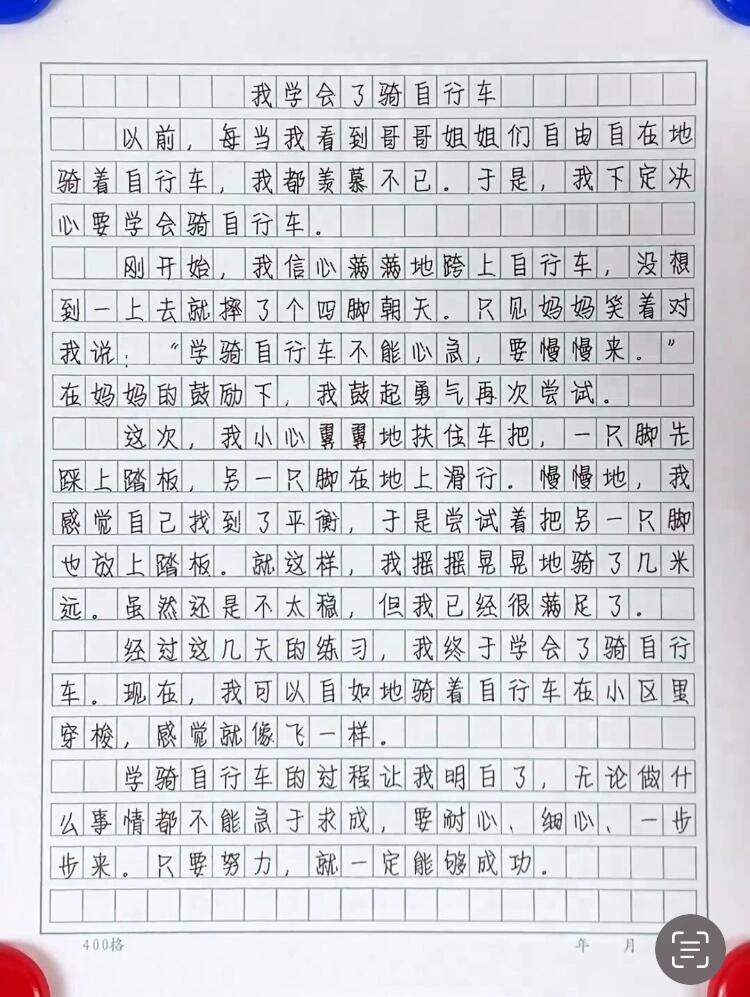 我学会了骑自行车
以前，每当我看到哥哥姐姐们自由自在地
骑着自行车，我都羡慕不已。于是，我下定决
心要学会骑自行车。
刚开始，我信心满满地跨上自行车，没想
到一上去就摔了个四脚朝天。只见妈妈笑着对
我说：“学骑自行车不能心急，要慢慢来。”
在妈妈的鼓励下，我鼓起勇气再次尝试。
这次，我小心翼翼地扶住车把，一只脚先
踩上踏板，另一只脚在地上滑行。慢慢地，我
感觉自己找到了平衡，于是尝试着把另一只脚
也放上踏板。就这样，我摇摇晃晃地骑了几米
远。虽然还是不太稳，但我已经很满足了。
经过这几天的练习，我终于学会了骑自行
车。现在，我可以自如地骑着自行车在小区里
穿梭，感觉就像飞一样。
学骑自行车的过程让我明白了，无论做什
么事情都不能急于求成，要耐心、细心、一步
步来。只要努力，就一定能够成功。
400格 年 月